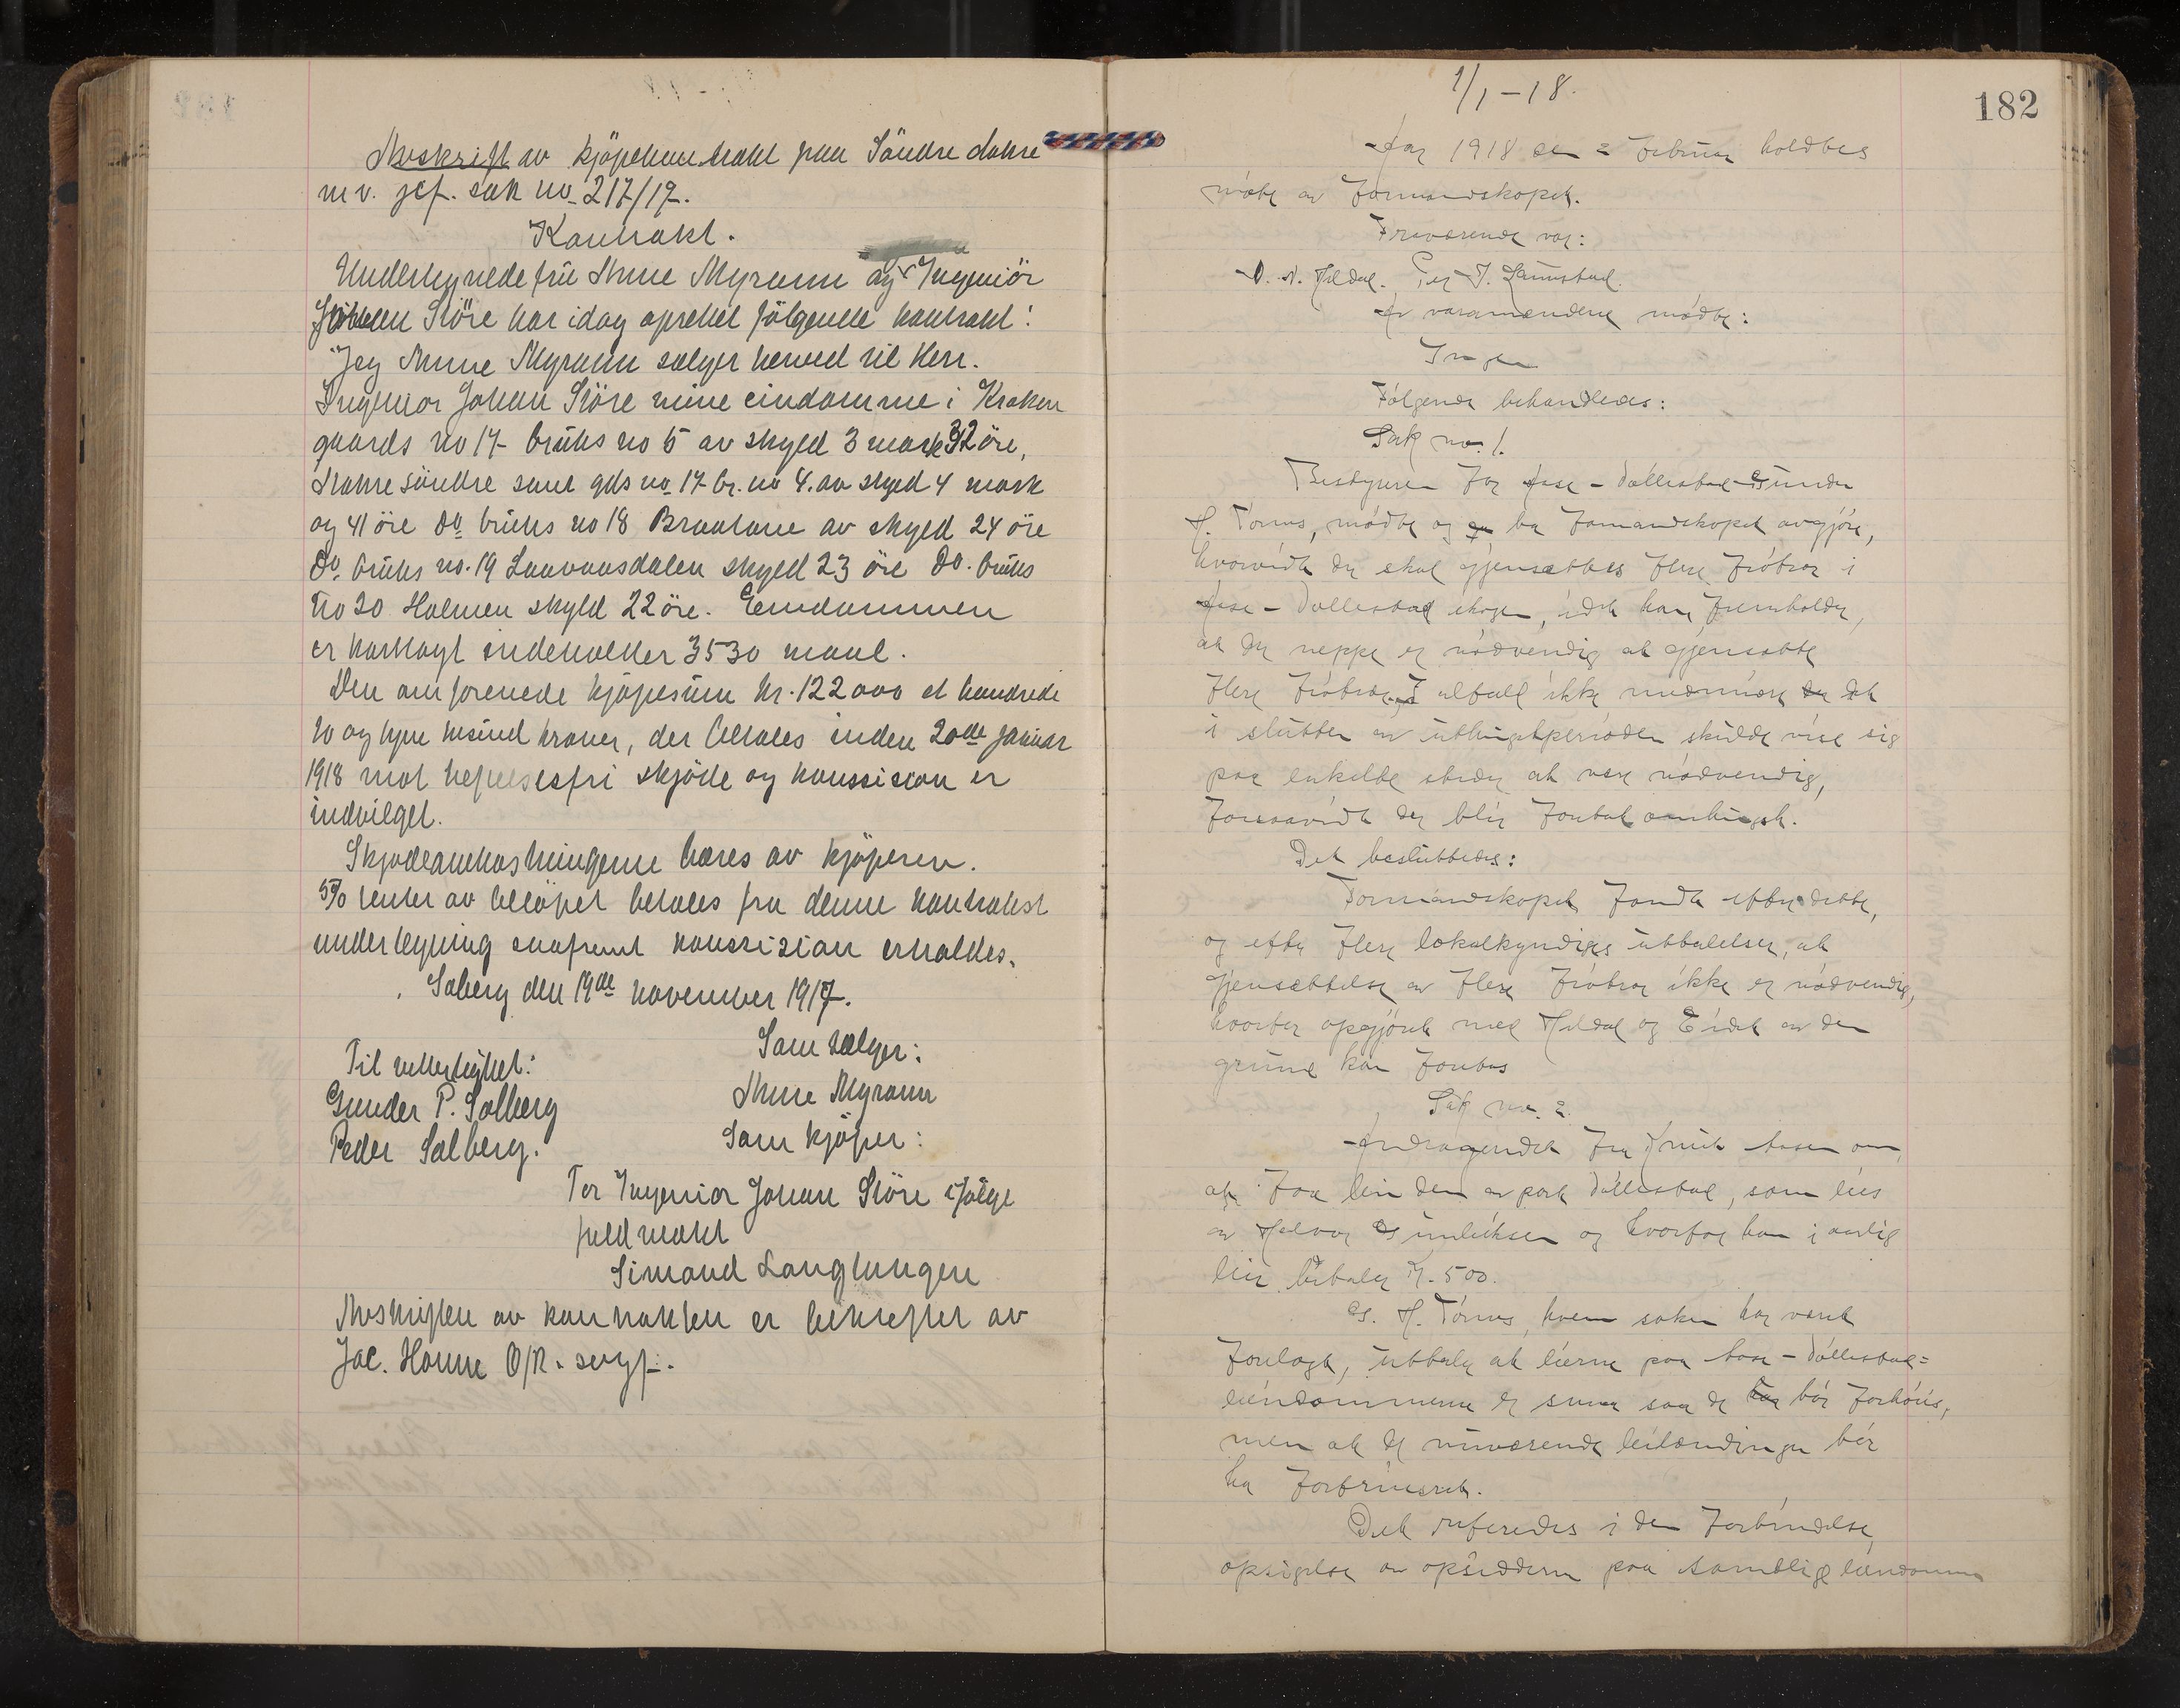 Avskrift av kjöpekontrakt paa Söndre Aakre
m v. jef. sak no 217/17.
Kontrakt.
Undertegnede frü Anne Myrann og Ingeniör
Johan Störe har idag oprettet fölgende kontrakt:
Jeg Anne Myrann sælger herved til Herr.
Ingeniör Johan Störe mine eindomme i Kroken
gaards no 17 bruks no 5 av skyld 3 mark 32 öre,
Aakre söndre samt gds no 17 br. no 4. av skyld 4 mark
og 41 öre do bruks no 18 Braatane av skyld 24 öre
do. bruks no. 19 skyld 23 öre do. bruks
no 20 Holmen skyld 22 öre. Eiendommen
er kartlagt indeholder 3530 maal.
Den omforenede kjöpesüm kr. 122000 et hundrede
to og tyve tusind kroner, der betales inden 20de januar
1918 mot heftelsesfri skjöde og konsesion er
indvilget.
Skjödeomkostningerne bæres av kjöperen.
5% renter av belöpet betales fra denne kontrakst
undertegning saafremt konsesion erholdes.
Solberg den 19de november 1917.
Til vitterlighet:
Som sælger:
Gunder P. Solberg
Anne Myrann
Peder Solberg.
Som kjöper:
For Ingeniör Johan Störe ifölge
fuldmakt
Simond Langlungen
Avskriften av kontrakten er bekreftet av
Jac. Homme O/R. sagf.
2/1-18.
182
Aar 1918 den 2 holdtes
möte av Formandskapet.
Frøværende var:
O. N. Heldal. Per J. Lannstad.
Av varamændene mödte:
Ingen
Fölgende behandledes:
Sak no. 1.
Bestyreren for Aase-Dällestad Gunder
H. Törnes, mödte og ba Formandskapet avgjöre,
hvorvidt der skal gjensættes flere fröträr i
Aase-Dållestad skogen, idet han fremholder,
at det neppe er nödvendig at gjensætte
flere frötrær. I alfald ikke medmindre det
i slütten av skülde vise sig
paa enkelte steder at være nödvendig,
forsaavidt der blir
Det beslüttedes:
Formandskapet fandt efter dette,
og efter flere lokalkyndiges üttalelser, at
gjensættelse av flere fröträr ikke er nödvendig,
hvorfor opgjöret med Heldal og Eidet av den
grund kan foretas
Sak no. 2.
Andragendet fra Knut Aasen om,
at faa leie den av part Dållestad, som leies
av Halvor Gunleiksen og hvorfor han i aarlig
leie betaler kr. 500.
G. H. Törnes, hvem saken har været
forelagt, üttaler at leierne paa Aase-Dållestad=
eiendommene er smaa saa de bör forhöies,
men at de nuværende leilændinger bör
ha fortrinsret.
Det referedes i den forbindelse
opsigelse av opsidderne paa samtlige eiendomme